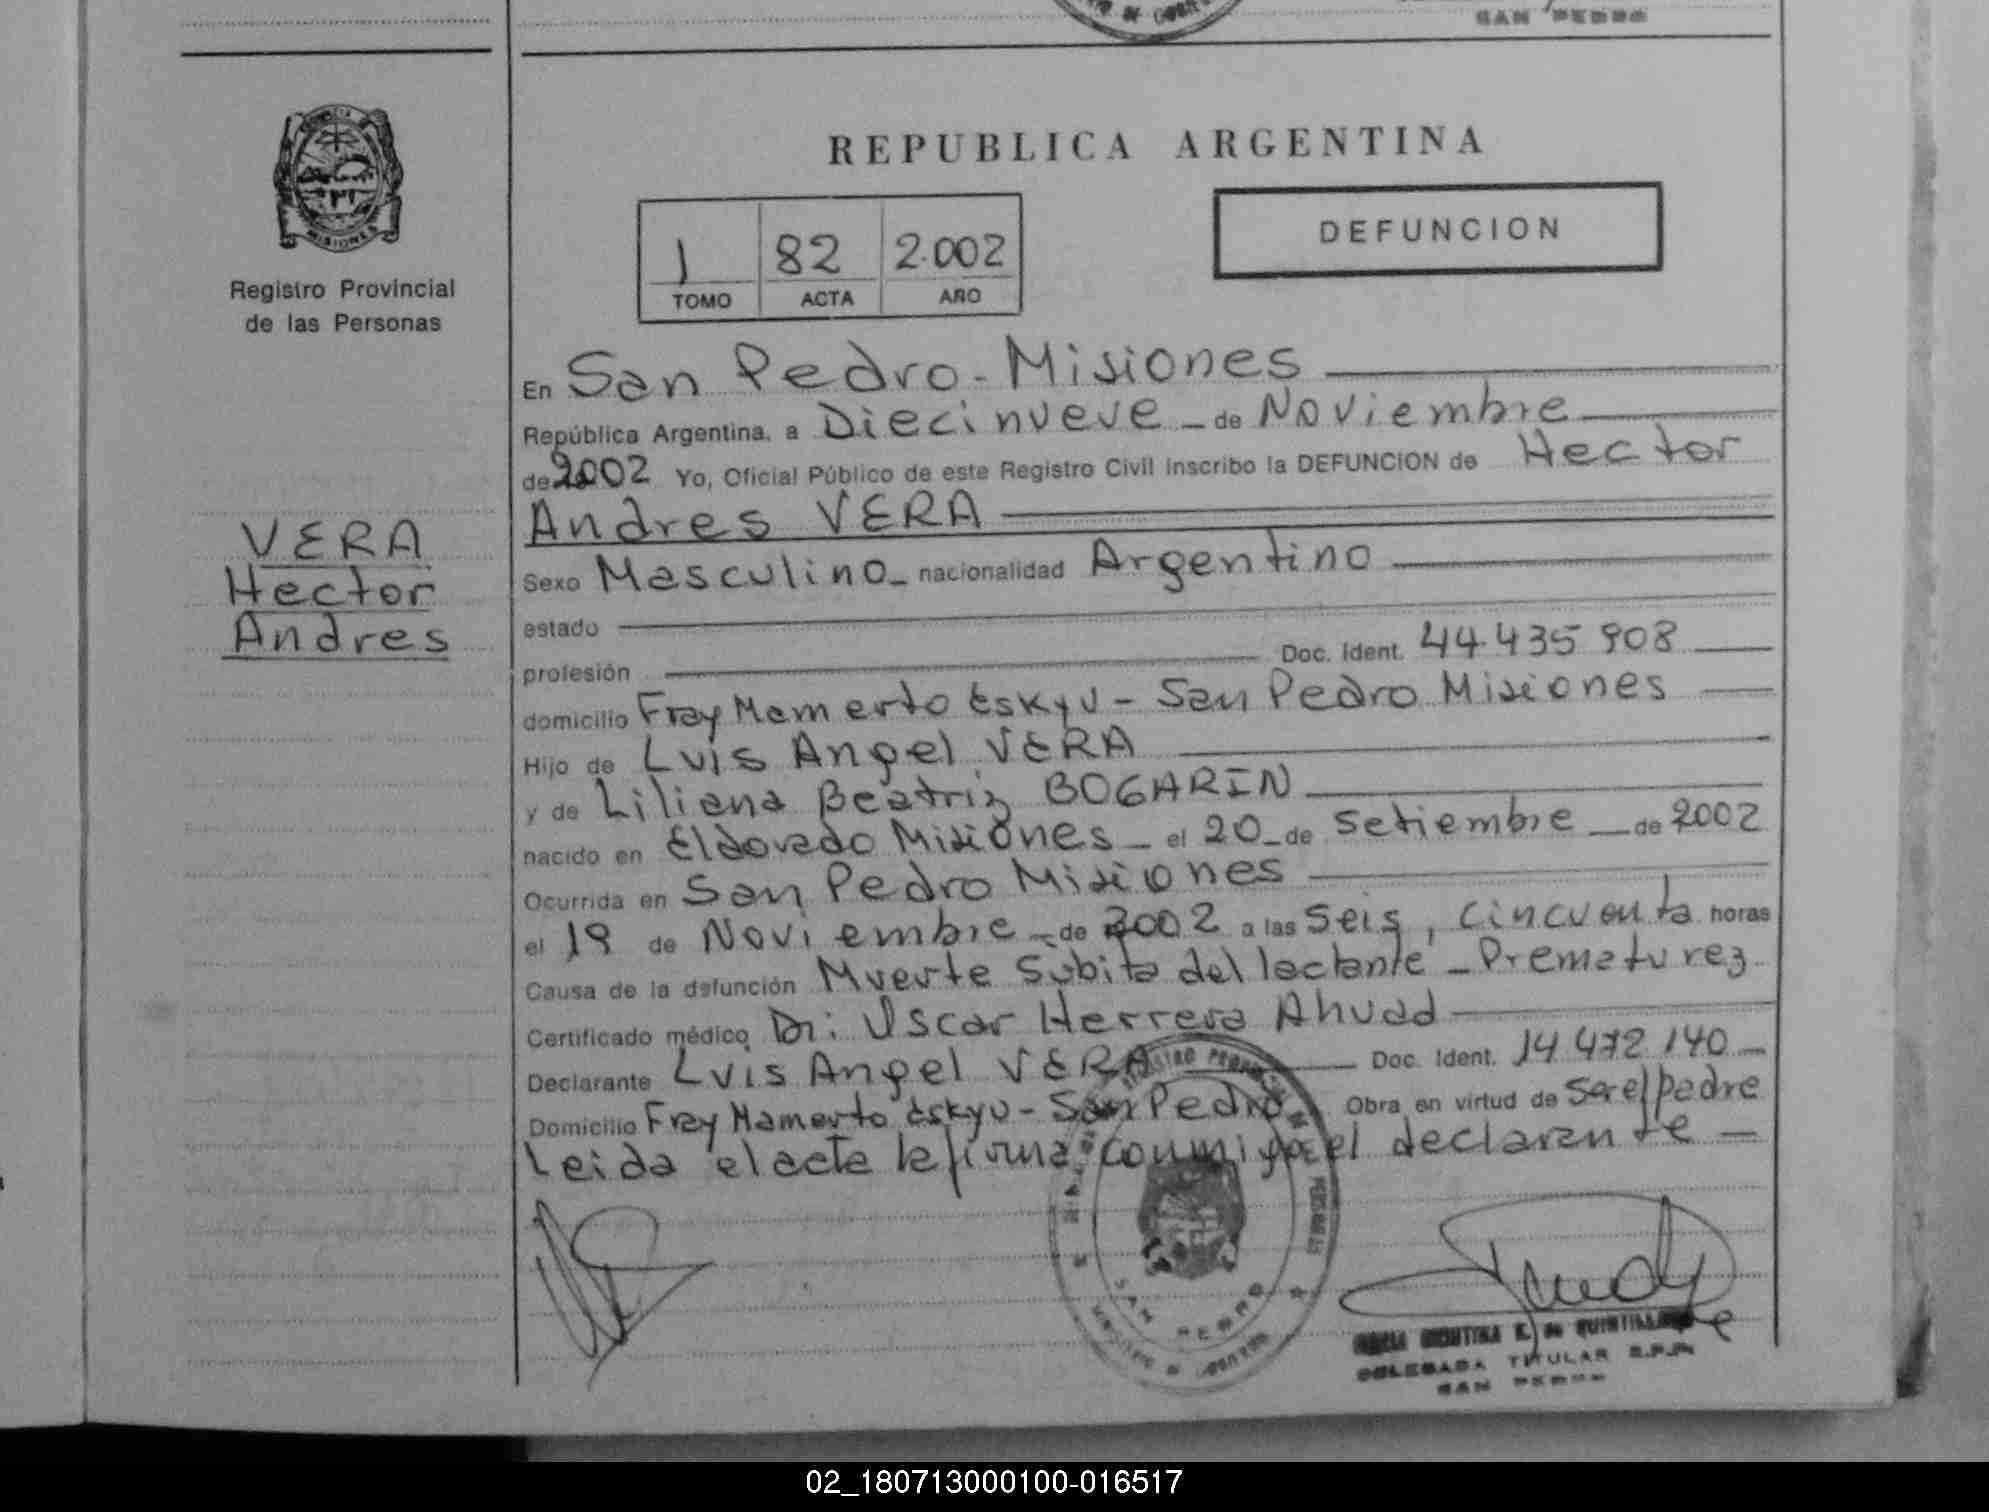 SAN PEDRO
REPUBLICA ARGENTINA
DEFUNCION
1 82 2.002
TOMO ACTA AÑO
MISIONES
Registro Provincial
de las Personas
VERA
Hector
Andres
En San Pedro - Misiones
República Argentina, a Diecinueve - de Noviembre
de 2002 Yo, Oficial Público de este Registro Civil inscribo la DEFUNCION de Hector
Andres VERA
Sexo Masculino - nacionalidad Argentino
estado
profesión Doc. Ident. 44.435 908
domicilio Fray Mamerto Eskyu - San Pedro Misiones
Hijo de Luis Angel VERA
y de Liliana Beatriz BOGARIN
nacido en Eldorado Misiones - el 20 - de Setiembre - de 2002
Ocurrida en San Pedro Misiones
el 19 de Noviembre - de 2002 a las Seis, cincuenta horas
Causa de la defunción Muerte Subita del lactante - Prematurez
Certificado médico Dr: Oscar Herrera Ahuad
Declarante Luis Angel VERA Doc. Ident. 14 472 140
Domicilio Fray Mamerto Eskyu - San Pedro Obra en virtud de Ser el padre
Leida el acta la firma conmigo el declarante -
SAN PEDRO
DELEGADA TITULAR R.P.P.
SAN PEDRO
02_180713000100-016517